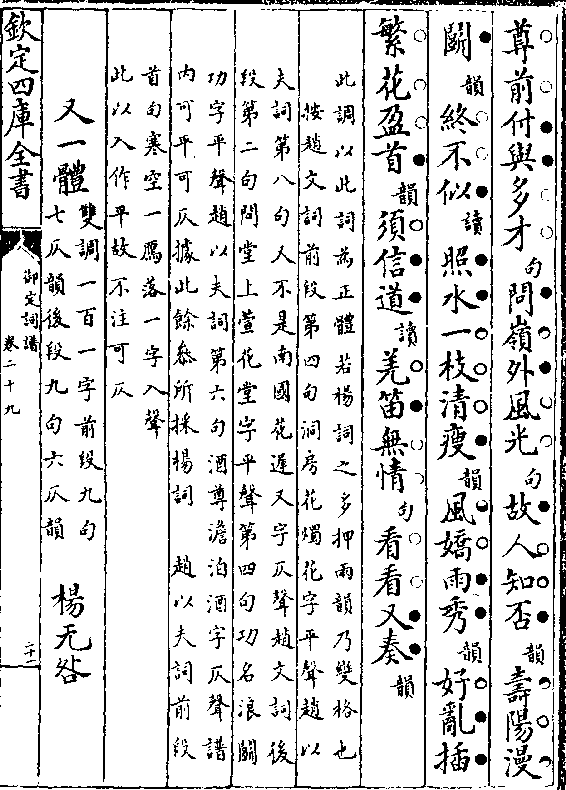 尊前付與多才句問嶺外風光句故人知否韻壽陽漫
鬭韻終不似讀照水一枝清瘦韻風嬌雨秀韻好亂插
繁花盈首韻須信道讀羌笛無情句看看又奏韻
此調以此詞為正體若楊詞之多押兩韻乃變格也
按趙文詞前段第四句洞房花燭花字平聲趙以
夫詞第八句又不是南國花遲又字仄聲趙文詞後
段第二句問堂上萱花堂字平聲第四句功名浪關
功字平聲趙以夫詞第六句酒尊澹泊酒字仄聲譜
內可平可仄據此餘參所採楊詞 趙以夫詞前段
首句寒空一鴈落一字入聲
此以入作平故不注可仄
又一體雙調一百一字前段九句
七仄韻後段九句六仄韻 楊无咎
欽定四庫全書
御定詞譜
卷二十九
二十二